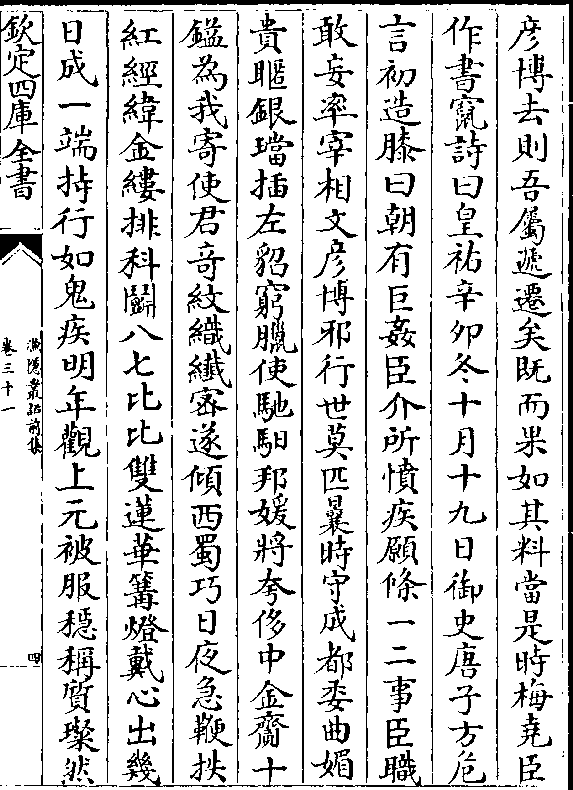 彦博去則吾屬遞遷矣既而果如其料當是時梅堯臣
作書竄詩曰皇祐辛卯冬十月十九日御史唐子方危
言初造膝曰朝有巨姦臣介所憤疾願條一二事臣職
敢妄率宰相文彦博邪行世莫匹曩時守成都委曲媚
貴暱銀璫插左貂窮臘使馳馹邦媛將夸侈中金齎十
鎰為我寄使君奇紋織纖宻遂傾西蜀巧日夜急鞭抶
紅經緯金縷排科鬭八七比比雙蓮華篝燈戴心出幾
日成一端持行如鬼疾明年觀上元被服穩稱質璨然
欽定四庫全書
漁隱叢話前集
卷三十一
四